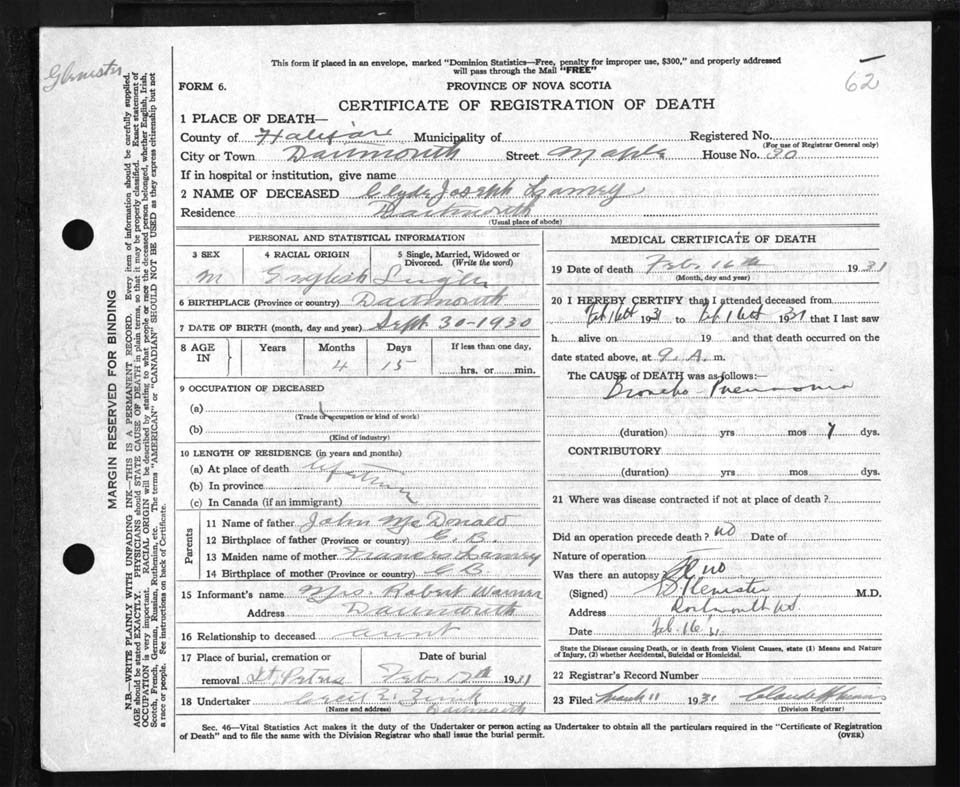 62
This form if placed in an envelope, marked "Dominion Statistics—Free, penalty for improper use, $300," and properly addressed
will pass through the Mail "FREE"
FORM 6.
PROVINCE OF NOVA SCOTIA
CERTIFICATE OF REGISTRATION OF DEATH
MARGIN RESERVED FOR BINDING
N.B.—WRITE PLAINLY WITH UNFADING INK—THIS IS A PERMANENT RECORD. Every item of information should be carefully supplied.
AGE should be stated EXACTLY. PHYSICIANS should STATE CAUSE OF DEATH in plain terms, so that it may be properly classified. Exact statement of
OCCUPATION is very important. RACIAL ORIGIN will be described by stating to what people or race the deceased person belonged, whether English, Irish,
Scotch, French, German, Russian, Ruthenian, etc. The terms "AMERICAN" or "CANADIAN" SHOULD NOT BE USED as they express citizenship but not
a race or people. See instructions on back of Certificate.
1 PLACE OF DEATH—
County of Halifax Municipality of Registered No.
(For use of Registrar General only)
City or Town Dartmouth Street Maple House No. 30
If in hospital or institution, give name
2 NAME OF DECEASED Clyde Joseph
Residence Dartmouth
(Usual place of abode)
PERSONAL AND STATISTICAL INFORMATION
3 SEX 4 RACIAL ORIGIN 5 Single, Married, Widowed or
Divorced. (Write the word)
M English Single
6 BIRTHPLACE (Province or country) Dartmouth
7 DATE OF BIRTH (month, day and year) Sept 30-1930
8 AGE IN Years Months Days If less than one day,
4 15 hrs. or min.
9 OCCUPATION OF DECEASED
(a)
(Trade occupation or kind of work)
(b)
(Kind of industry)
10 LENGTH OF RESIDENCE (in years and months)
(a) At place of death Lifetime
(b) In province
(c) In Canada (if an immigrant)
Parents
11 Name of father John McDonald
12 Birthplace of father (Province or country) C.B.
13 Maiden name of mother Frances
14 Birthplace of mother (Province or country) C B
15 Informant's name Mrs. Robert Warner
Address Dartmouth
16 Relationship to deceased aunt
17 Place of burial, cremation or removal St. Peters Date of burial Feb 17th 1931
18 Undertaker Cecil E. Zink
(Name and address) Dartmouth
MEDICAL CERTIFICATE OF DEATH
19 Date of death Feb 16th 1931
(Month, day and year)
20 I HEREBY CERTIFY that I attended deceased from
Feb 16th 1931 to Feb 16th 1931 that I last saw
h alive on 19 and that death occurred on the
date stated above, at 9. A. m.
The CAUSE of DEATH was as follows:—
Broncho-Pneumonia
(duration) yrs mos 7 dys.
CONTRIBUTORY
(duration) yrs mos dys.
21 Where was disease contracted if not at place of death?
Did an operation precede death? no Date of
Nature of operation
Was there an autopsy no
(Signed) M.D.
Address Dartmouth NS
Date Feb. 16 '31
State the Disease causing Death, or in death from Violent Causes, state (1) Means and Nature
of Injury, (2) whether Accidental, Suicidal or Homicidal.
22 Registrar's Record Number
23 Filed March 11 1931
(Division Registrar)
Sec. 46—Vital Statistics Act makes it the duty of the Undertaker or person acting as Undertaker to obtain all the particulars required in the "Certificate of Registration
of Death" and to file the same with the Division Registrar who shall issue the burial permit. (OVER)